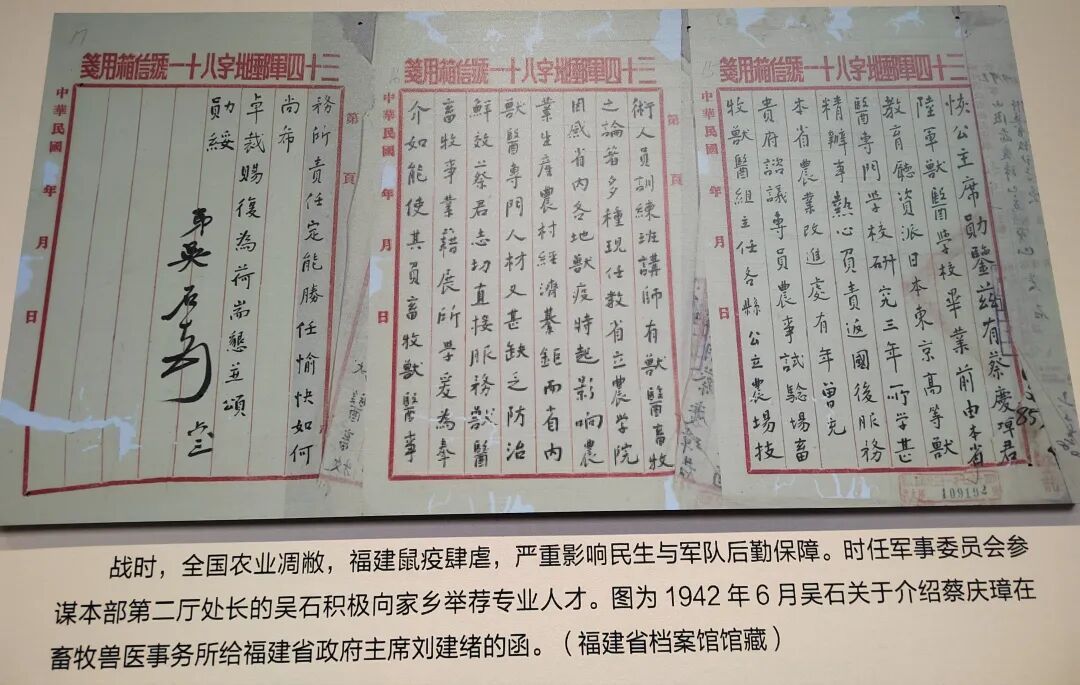 三十四軍郵地字八十一號信箱用箋
中華民國 年 月 日
恢公主席勛鑒茲有蔡慶璋君
陸軍獸醫學校畢業前由本省
教育廳資派日本東京高等獸
醫專門學校研究三年所學甚
精辦事熱心負責返國後服務
本省農業改進處有年曾充
貴府諮議專員農事試驗場畜
牧獸醫組主任各縣公立農場技
109192
三十四軍郵地字八十一號信箱用箋
第 頁
術人員訓練班講師有獸醫畜牧
之論著多種現任教省立農學院
因感省內各地獸疫時起影响農
業生産農村經濟綦鉅而省內
獸醫專門人材又甚缺乏防治
鮮效蔡君志切直接服務獸醫
畜牧事業藉展所學爰為奉
介如能使其負畜牧獸醫事
中華民國 年 月 日
三十四軍郵地字八十一號信箱用箋
第 頁
務所責任定能勝任愉快如何
尚希
卓裁賜復為荷耑懇並頌
勛綏
弟吳石
中華民國 年 月 日
17
战时，全国农业凋敝，福建鼠疫肆虐，严重影响民生与军队后勤保障。时任军事委员会参
谋本部第二厅处长的吴石积极向家乡举荐专业人才。图为 1942 年 6 月吴石关于介绍蔡庆璋在
畜牧兽医事务所给福建省政府主席刘建绪的函。（福建省档案馆馆藏）